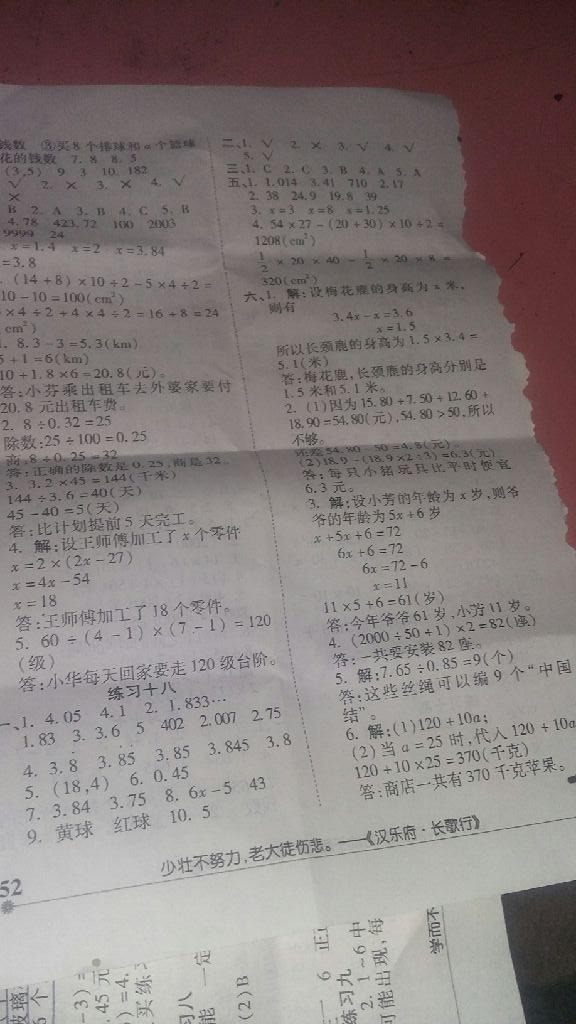 钱数 ③买8个排球和a个篮球
花的钱数 7. 8 8. 5
(3,5) 9 3 10. 182
√ 2. × 3. × 4. √
×
B 2. A 3. B 4. C 5. B
4.78 423.72 100 2003
9999 24
x=1.4 x=2 x=3.84
=3.8
(14+8)×10÷2-5×4÷2=
10-10=100(cm²)
×4÷2+4×4÷2=16+8=24
cm²)
1. 8.3-3=5.3(km)
5+1=6(km)
10+1.8×6=20.8(元)。
答:小芬乘出租车去外婆家要付
20.8元出租车费。
2. 8÷0.32=25
除数:25÷100=0.25
商:8÷0.25=32
答:正确的除数是0.25,商是32。
3. 3.2×45=144(千米)
144÷3.6=40(天)
45-40=5(天)
答:比计划提前5天完工。
4. 解:设王师傅加工了x个零件
x=2×(2x-27)
x=4x-54
x=18
答:王师傅加工了18个零件。
5. 60÷(4-1)×(7-1)=120
(级)
答:小华每天回家要走120级台阶。
练习十八
一、1. 4.05 4.1 2. 1.833…
1.83 3. 3.6 5 402 2.007 2.75
4. 3.8 3.85 3.85 3.845 3.8
5. (18,4) 6. 0.45
7. 3.84 3.75 8. 6x-5 43
9. 黄球 红球 10. 5
二、1. √ 2. × 3. √ 4. √
5. √
三、1. C 2. C 3. B 4. A 5. A
五、1. 1.014 3.41 710 2.17
2. 38 24.9 19.8 39
3. x=3 x=8 x=1.25
4. 54×27-(20+30)×10÷2=
1208(cm²)
1/2×20×40-1/2×20×8=
320(cm²)
六、1. 解:设梅花鹿的身高为x米,
则有
3.4x-x=3.6
x=1.5
所以长颈鹿的身高为1.5×3.4=
5.1(米)
答:梅花鹿,长颈鹿的身高分别是
1.5米和5.1米。
2. (1)因为15.80+7.50+12.60+
18.90=54.80(元),54.80>50,所以
不够。
还差54.80-50=4.8(元)。
(2)18.9-(18.9×2÷3)=6.3(元)
答:每只小猪玩具比平时便宜
6.3元。
3. 解:设小芳的年龄为x岁,则爷
爷的年龄为5x+6岁
x+5x+6=72
6x+6=72
6x=72-6
x=11
11×5+6=61(岁)
答:今年爷爷61岁,小芳11岁。
4. (2000÷50+1)×2=82(座)
答:一共要安装82座。
5. 解:7.65÷0.85=9(个)
答:这些丝绳可以编9个“中国
结”。
6. 解:(1)120+10a;
(2)当a=25时,代入120+10a
120+10×25=370(千克)
答:商店一共有370千克苹果。
少壮不努力,老大徒伤悲。——《汉乐府·长歌行》
52
玻璃
6个
-3)=
.45元
)=4.
买练
习八
能 一定
(2)B
一 6 正
练习九
2. 1~6中
可能出现,每
学而不